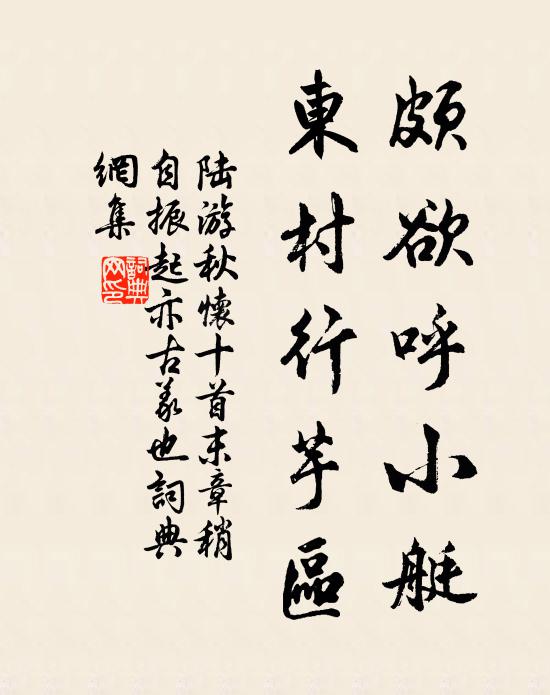 頗欲呼小艇
東村行芋區
陸游秋懷十首末章稍
自振起亦古義也詞典
網集
詞典
网印